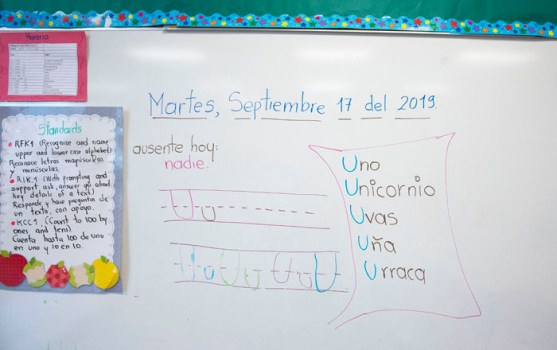 Horario
Standards
• RFK1 (Recognize and name
upper and lower case alphabet)
Reconoce letras mayúsculas
y minúsculas.
• RIK1 (With prompting and
support ask, answer q's about
key details of a text)
Responde y hace preguntas de
un texto, con apoyo.
• KCC1 (Count to 100 by
ones and tens)
Cuenta hasta 100 de uno
en uno y 10 en 10.
Martes, Septiembre 17 del 2019.
ausente hoy:
nadie.
U u
U u U u U U U
Uno
Unicornio
Uvas
Uña
Urraca